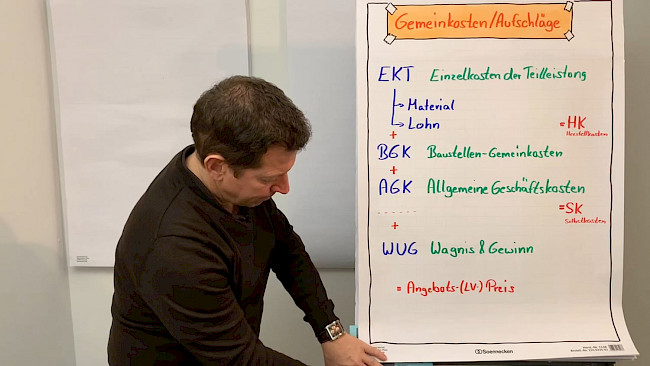 Gemeinkosten/Aufschläge
EKT Einzelkosten der Teilleistung
Material
Lohn
= HK
Herstellkosten
+
BGK Baustellen-Gemeinkosten
+
AGK Allgemeine Geschäftskosten
= SK
Selbstkosten
+
WUG Wagnis & Gewinn
= Angebots-(LV-) Preis
Soennecken